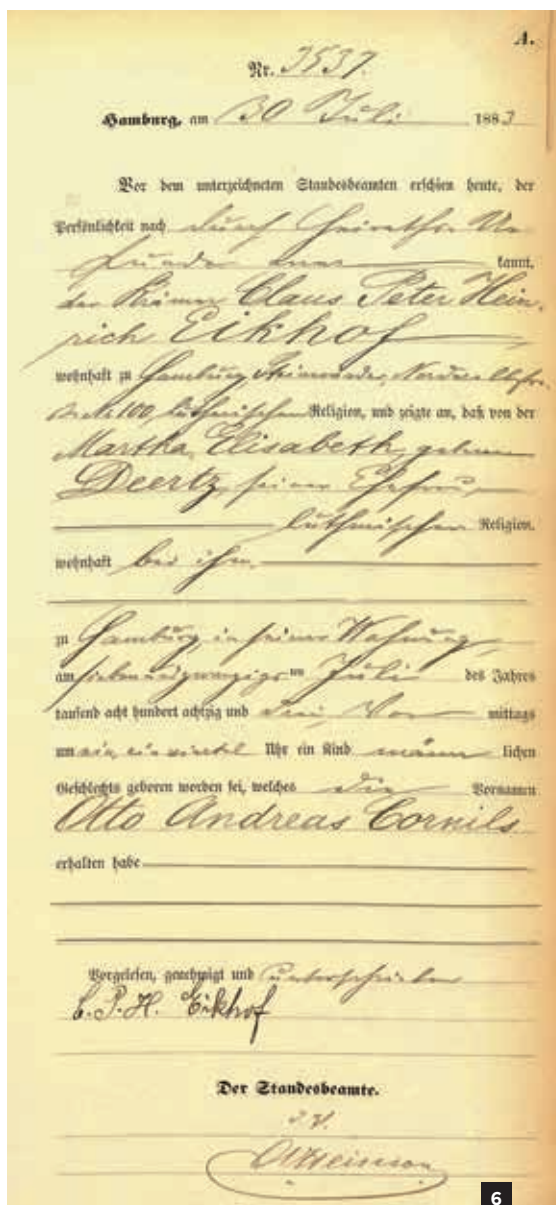 A.
Nr. 3537.
Hamburg, am 30 Juli 1883
Vor dem unterzeichneten Standesbeamten erschien heute, der
Persönlichkeit nach durch Heiraths-Ur-
kunde aner kannt,
der Krämer Claus Peter Hein-
rich Eikhof
wohnhaft zu Hamburg, Steinwärder, Norder
No 100, lutherischer Religion, und zeigte an, daß von der
Martha Elisabeth, geborne
Deertz, seiner Ehefrau,
lutherischer Religion,
wohnhaft bei ihm,
zu Hamburg, in seiner Wohnung,
am siebenundzwanzigsten Juli des Jahres
tausend acht hundert achtzig und drei, Vor mittags
um ein Uhr ein Kind männ lichen
Geschlechts geboren worden sei, welches die Vornamen
Otto Andreas Cornils
erhalten habe
Vorgelesen, genehmigt und unterschrieben
C. P. H. Eikhof
Der Standesbeamte.
6